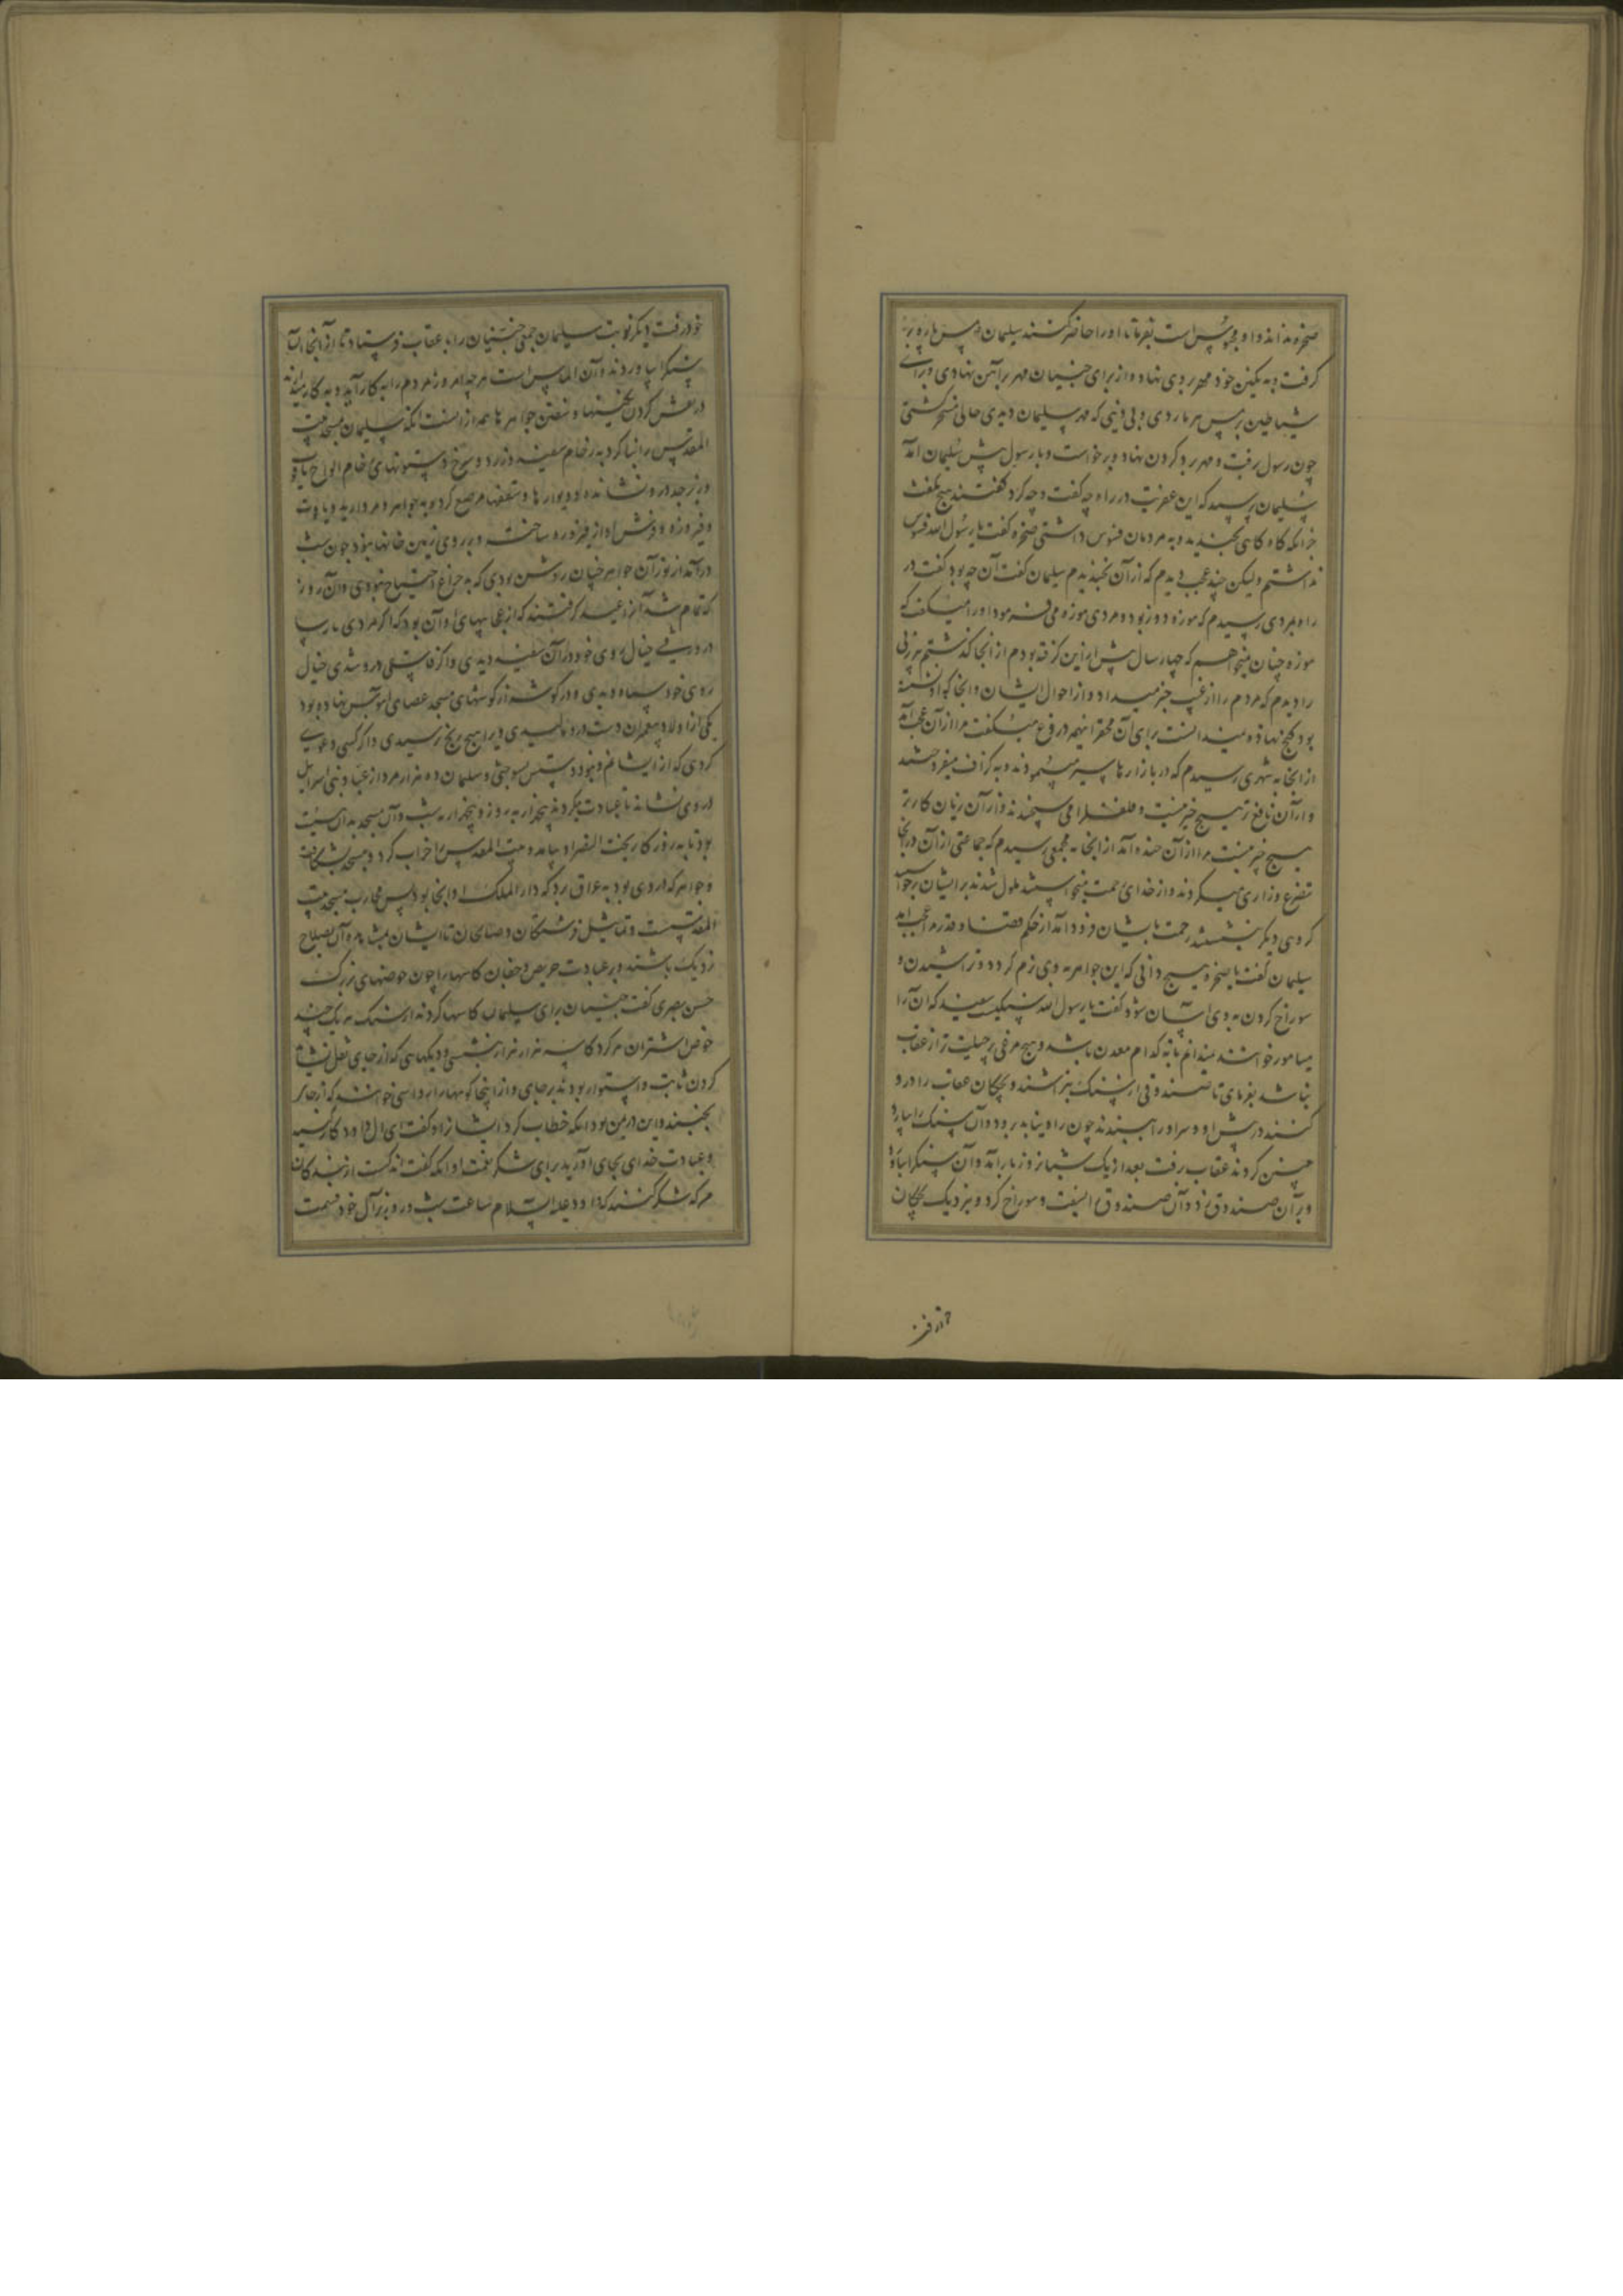 صخره نداند و او محبوس است بفرما تا او را حاضر کنند سلیمان پس پاره
گرفت و به نگین خود مهر بر وی نهاد و از برای جنیان مهر بر آهن نهادی و برای
شیاطین بر مس هر ماردی و بی دینی که مهر سلیمان دیدی حالی مسخر گشتی
چون رسول برفت و مهر بر گردن نهاد و برخواست و با رسول پیش سلیمان آمد
سلیمان پرسید که این عفریت در راه چه گفت و چه کرد گفتند هیچ نگفت
جز آنکه گاه گاهی بخندید و به مردمان فسوس داشتی صخره گفت یا رسول الله فسوس
نداشتم ولیکن چند عجب دیدم که از آن بخندیدم سلیمان گفت آن چه بود گفت در
راه بمردی رسیدم که موزه دوز بود و مردی موزه می فرمود او را میگفت که
موزه چنان میخواهم که چهار سال پیش از این گرفته بودم از آنجا گذشتم زنی
را دیدم که مردم را از غیب خبر میداد و از احوال ایشان و آنجا که او نشسته
بود گنج نهاده نمیدانست برای آن محقر اینهمه دروغ میگفت مرا از آن عجب آمد
از آنجا به شهری رسیدم که در بازارها سیر میپیمودند و به گزاف میفروختند
و از آن نافع تر هیچ چیز نیست و فلفل را می سنجیدند و از آن زیان کارتر
هیچ چیز نیست مرا از آن خنده آمد از آنجا به مجمعی رسیدم که جماعتی از آن در آنجا
تضرع و زاری میکردند و از خدای رحمت میخواستند ملول شدند برایشان برخواستند
گروهی دیگر بنشستند رحمت بایشان فرود آمد از حکم قضا و قدر مرا عجب آمد
سلیمان گفت یا صخره هیچ دانی که این جواهر به وی نرم گردد و تراشیدن و
سوراخ کردن به وی آسان شود گفت یا رسول الله سنگیست سفید که آن را
سامور خوانند نمیدانم تا به کدام معدن باشد و هیچ مرغی پرحیلت تر از عقاب
نباشد بفرمای تا صندوقی از سنگ بتراشند و بچگان عقاب را در و
کنند در پیش او و سر او را ببندند چون راه نیابد برود و آن سنگ را بیارد
چنین کردند عقاب برفت بعد از یک شبانروز باز آمد و آن سنگ را بیاورد
و بر آن صندوق زد و آن صندوق را بسفت و سوراخ کرد و بنزدیک بچگان
خود رفت دیگر نوبت سلیمان جمعی جنیان را با عقاب فرستاد تا از آنجا آن
سنگ را بیاوردند و آن الماس است هر چه امروز مردم را به کار آید و به کار میدارند
در نقش کردن نگینها و سفتن جواهر ها همه از انست آنگه سلیمان مسجد بیت
المقدس را بنا کرد به رخام سفید و زرد و سرخ و ستونهای رخام الواح یاقوت
و زبرجد درو نشانده و دیوارها و سقفها مرصع کرده به جواهر و مروارید و یاقوت
و فیروزه و فرش او از فیروزه ساخته و بر روی زمین خانها نبود چون شب
درآمد از نور آن جواهر چنان روشن بودی که به چراغ احتیاج نبودی و آن روز
که تمام شد آنرا عید گرفتند که از عجایبهای او آن بود که اگر مردی پارسا
در و رفتی خیال روی خود در آن سفید دیدی و اگر فاسقی درو شدی خیال
روی خود سیاه دیدی و در گوشه از گوشهای مسجد عصای آبنوس نهاده بود
یکی از اولاد پیغمبران دست درو مالیدی ویرا هیچ رنج نرسیدی و اگر کسی دعوی
کردی که از ایشانم و نبود دستش بسوختی و سلیمان ده هزار مرد از عباد بنی اسرائیل
در وی نشاند تا عبادت میکردند پنجهزار به روز و پنجهزار به شب و آن مسجد به آن هیئت
بود تا به روزگار بخت النصر او بیامد و بیت المقدس را خراب کرد و مسجد بشکافت
و جواهر که در وی بود به عراق برد که دار الملک او آنجا بود پس محاریب مسجد بیت
المقدسست و تماثیل فرشتگان و صالحان تا ایشان بمشاهده آن بصلاح
نزدیک باشند و بر عبادت حریص و جفان کاسها را چون حوضهای بزرگ
حسن بصری گفت جنیان برای سلیمان کاسها کردند از سنگ هر یک چند
حوض اشتران هر گرد کاسه هزار هزار بنشستی و دیگهایی که از جای نقل نشاید
کردن ثابت و استوار بودند بر جای و از اینجا کوهها را رواسی خوانند که از جای
بجنبند و این در یمن بود آنگه خطاب کرد ایشانرا و گفت ای آل داود کار کنید
و عبادت خدای بجای آورید برای شکر نعمت او آنگه گفت اندکست از بندگان
هر که شکر کنند که داود علیه السلام ساعت شب و روز بر آل خود قسمت